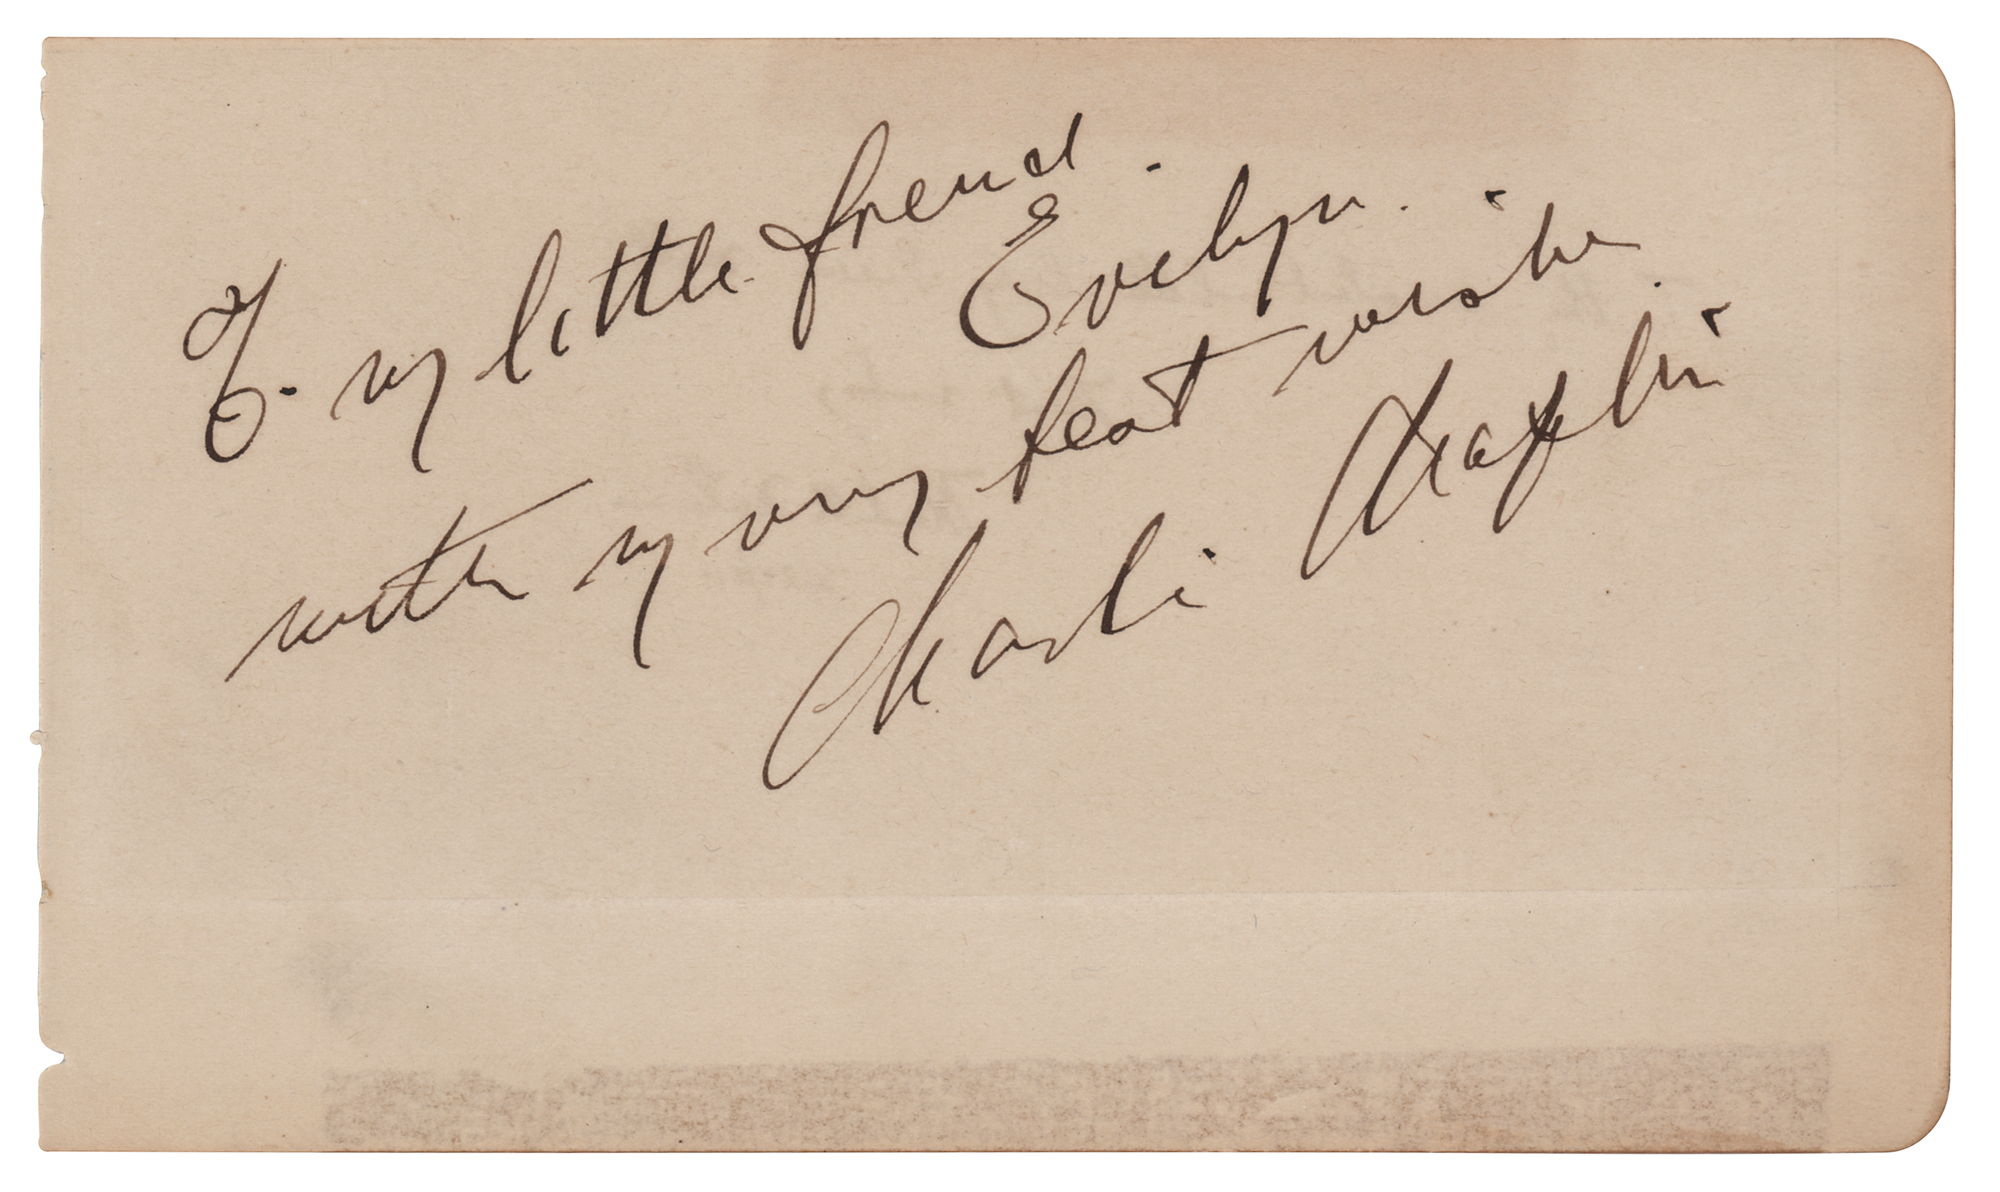 To my little friend.
Evelyn.
with my very best wishes
Charlie Chaplin